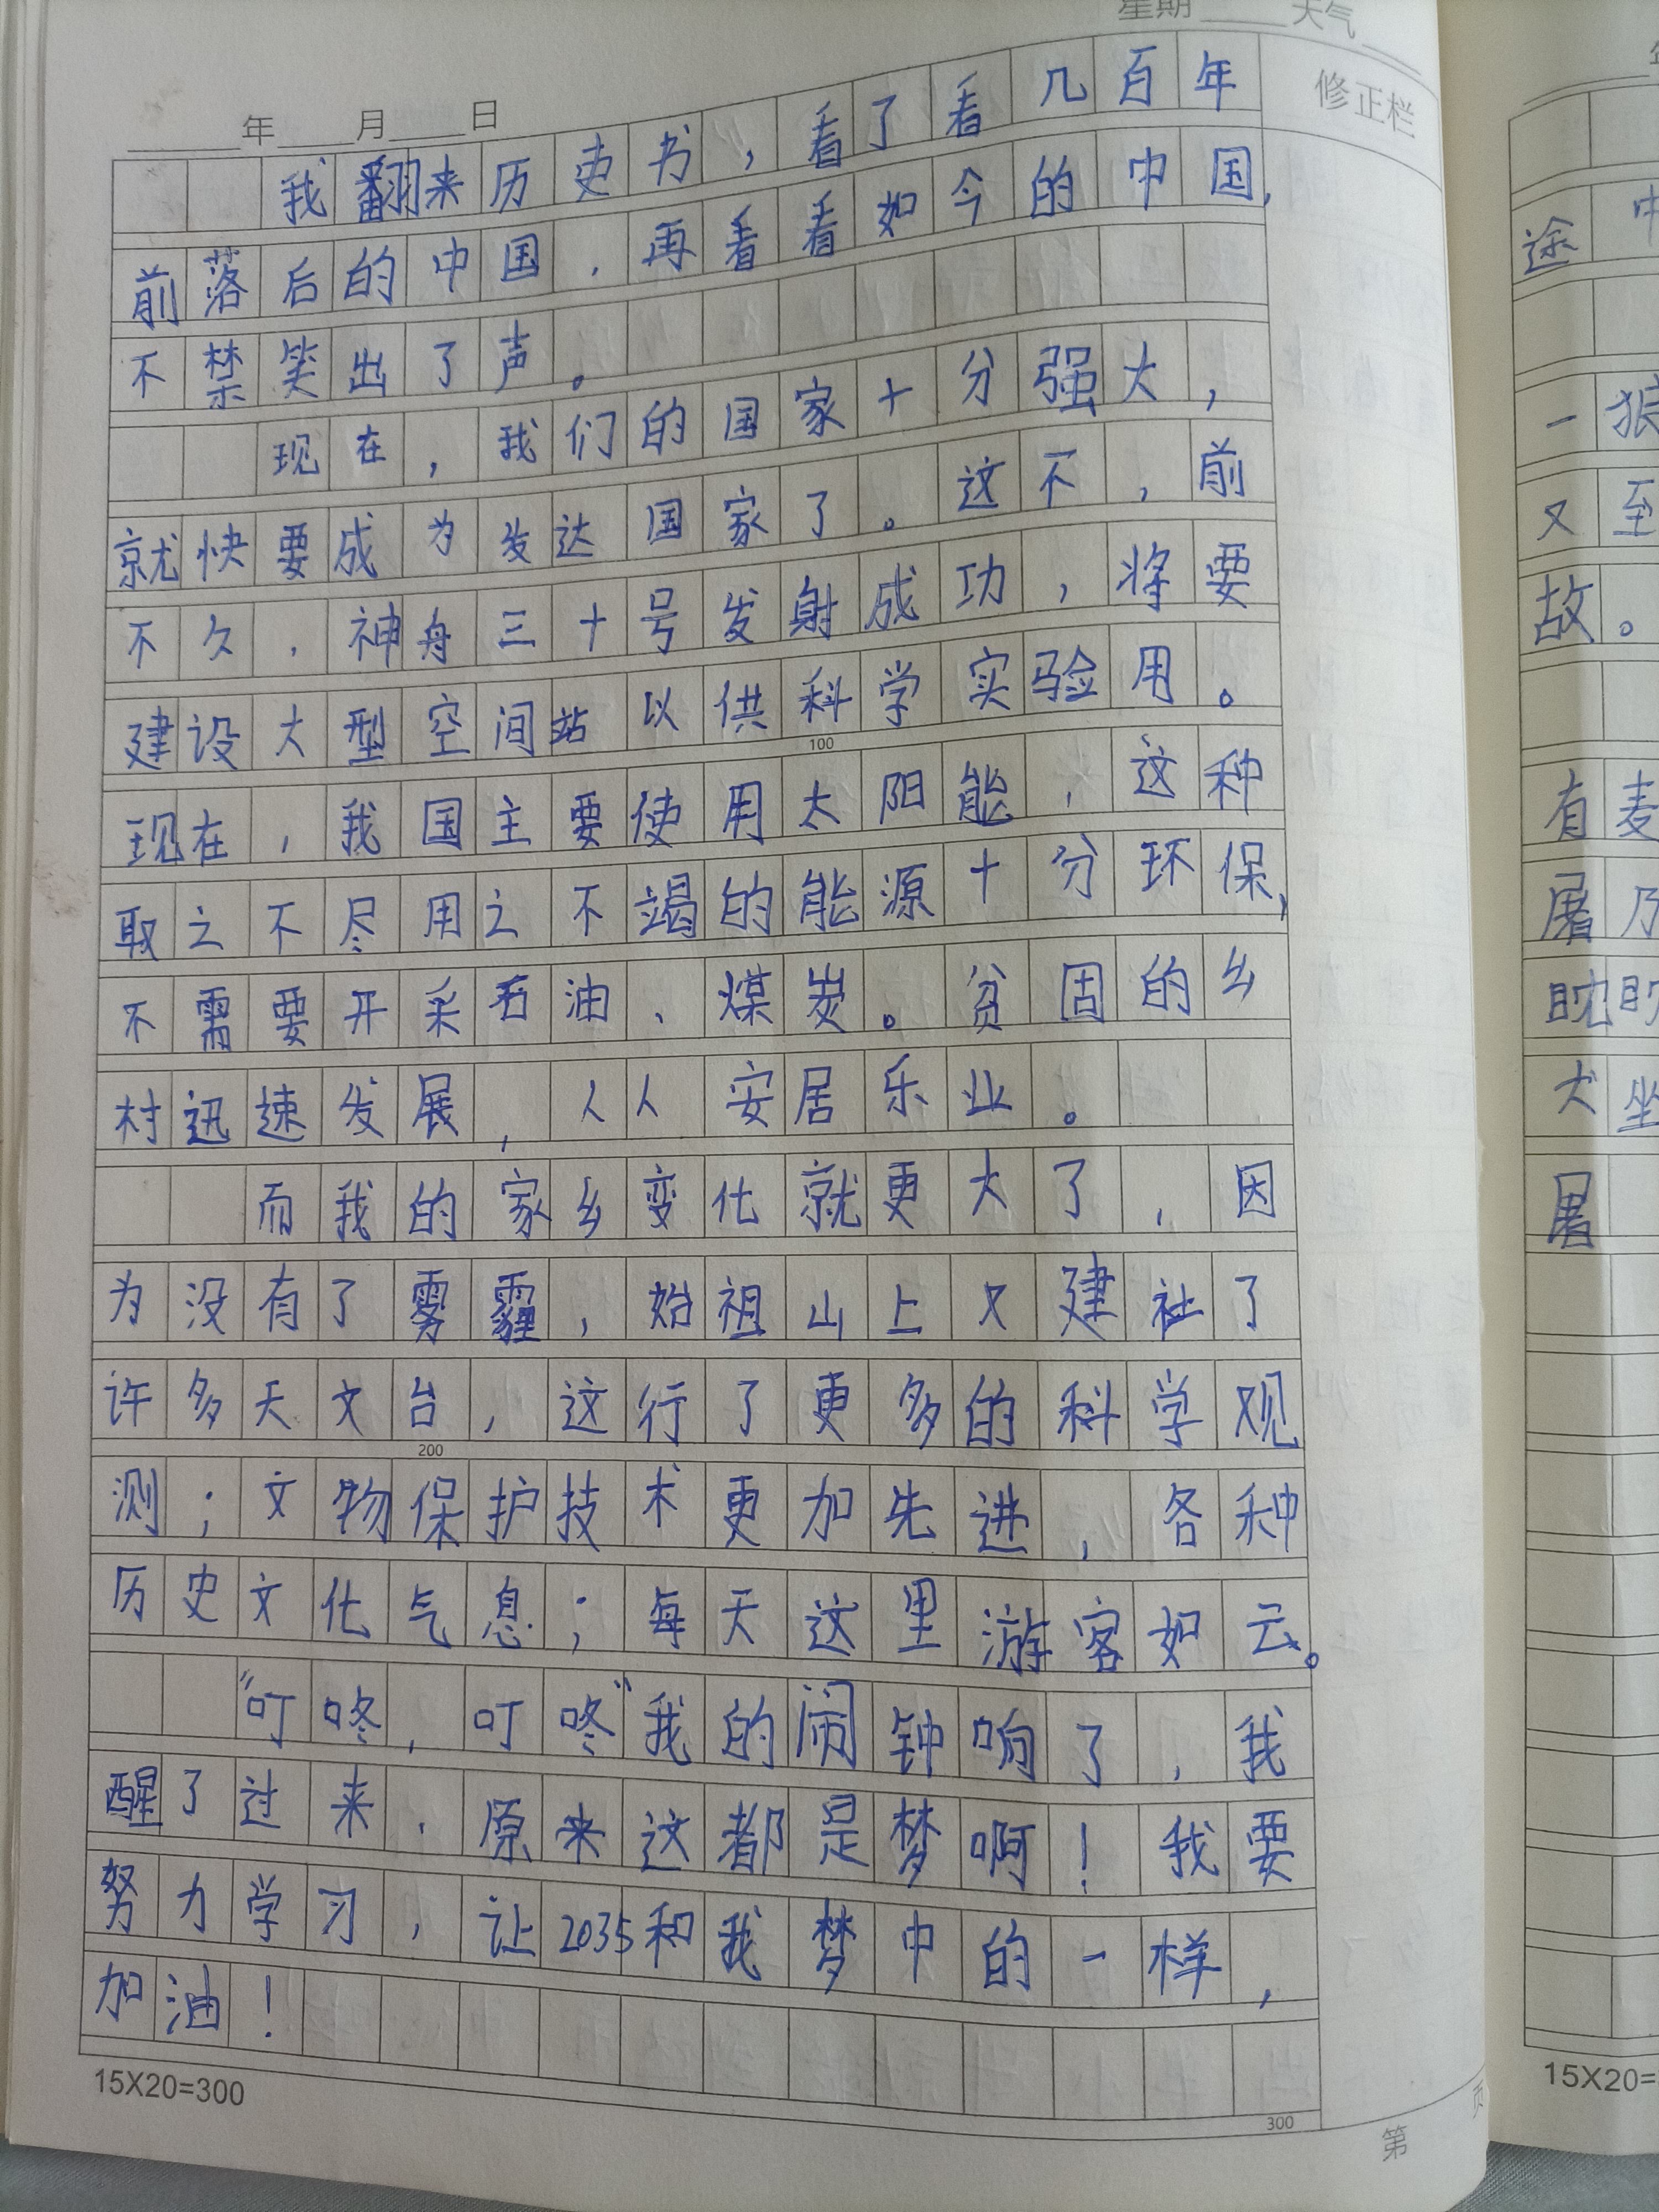 星期 天气
年 月 日
修正栏
我翻来历史书，看了看几百年
前落后的中国，再看看如今的中国，
不禁笑出了声。
现在，我们的国家十分强大，
就快要成为发达国家了。这不，前
不久，神舟三十号发射成功，将要
建设大型空间站以供科学实验用。
100
现在，我国主要使用太阳能，这种
取之不尽用之不竭的能源十分环保，
不需要开采石油、煤炭。贫困的乡
村迅速发展，人人安居乐业。
而我的家乡变化就更大了，因
为没有了雾霾，始祖山上又建社了
许多天文台，这行了更多的科学观
200
测；文物保护技术更加先进，各种
历史文化气息；每天这里游客如云。
“叮咚，叮咚”我的闹钟响了，我
醒了过来，原来这都是梦啊！我要
努力学习，让2035和我梦中的一样，
加油！
15X20=300
300
第 页
途中
一狼
又至
故。
有麦
屠乃
眈眈
犬坐
屠
15X20=